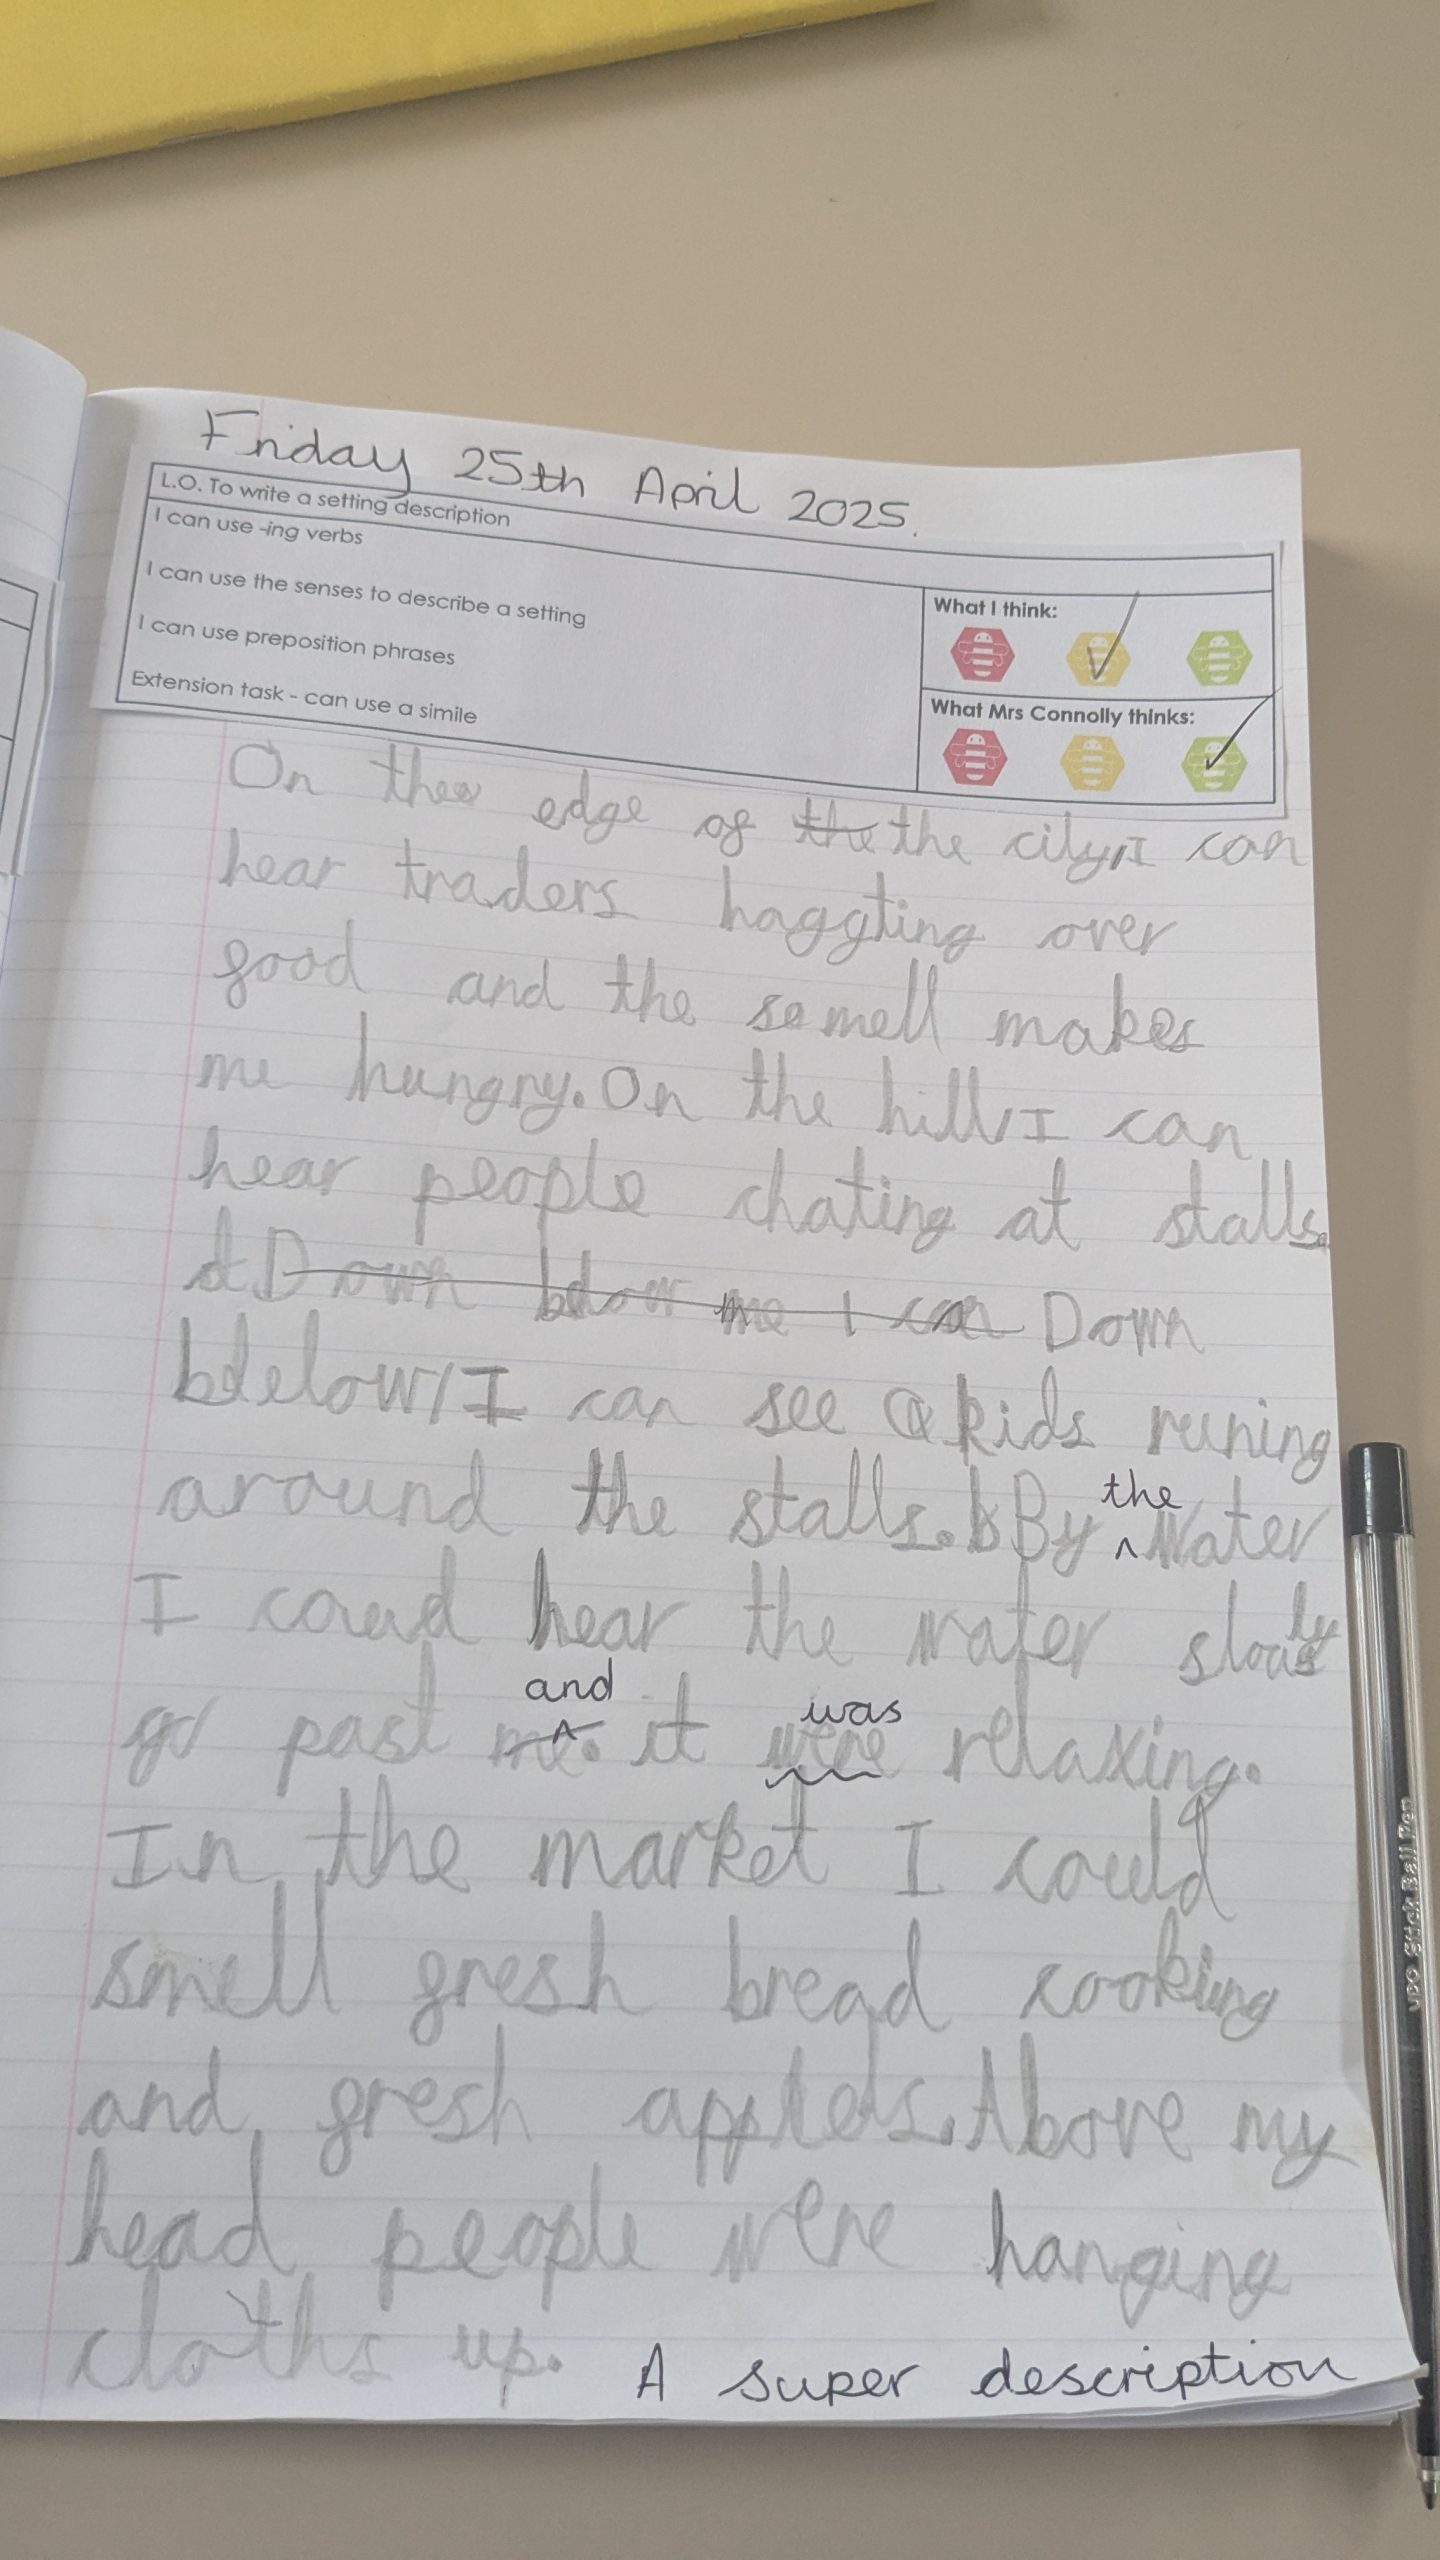 Friday 25th April 2025.
L.O. To write a setting description
I can use -ing verbs
I can use the senses to describe a setting
I can use preposition phrases
Extension task - can use a simile
What I think:
What Mrs Connolly thinks:
On the edge of the the city, I can
hear traders haggting over
good and the smell makes
me hungry. On the hill, I can
hear people chating at stalls.
Down below me I can Down
below, I can see kids runing
around the stalls. By the water
I could hear the water slowly
go past me. and it were was relaxing.
In the market I could
smell fresh bread cooking
and fresh appels. Above my
head people were hanging
cloths up. A super description
upco Stick Ball Pen